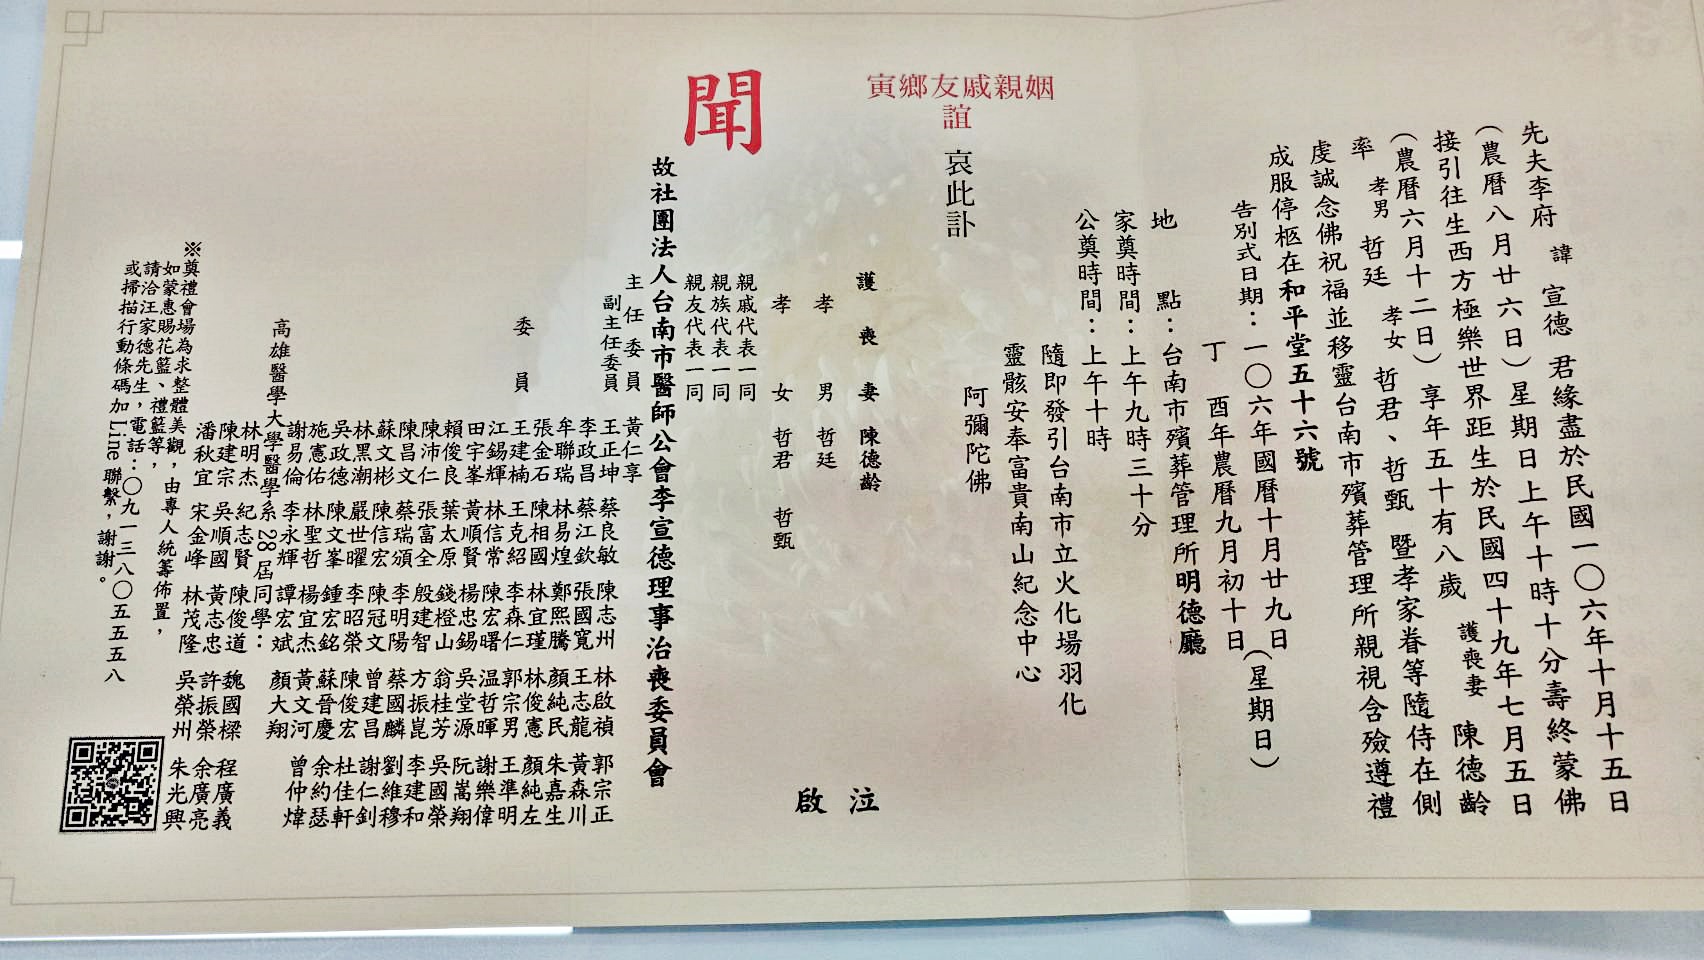 先夫李府 諱 宣德 君緣盡於民國一〇六年十月十五日
(農曆八月廿六日)星期日上午十時十分壽終蒙佛
接引往生西方極樂世界距生於民國四十九年七月五日
(農曆六月十二日)享年五十有八歲 護喪妻 陳德齡
率 孝男 哲廷 孝女 哲君、哲甄 暨孝家眷等隨侍在側
虔誠念佛祝福並移靈台南市殯葬管理所親視含殮遵禮
成服停柩在和平堂五十六號
告別式日期:一〇六年國曆十月廿九日(星期日)
丁酉年農曆九月初十日
地點:台南市殯葬管理所明德廳
家奠時間:上午九時三十分
公奠時間:上午十時
隨即發引台南市立火化場羽化
靈骸安奉富貴南山紀念中心
阿彌陀佛
姻親戚友鄉寅
誼 哀此訃
聞
護喪妻 陳德齡 泣
孝男 哲廷
孝女 哲君 哲甄 啟
親戚代表一同
親族代表一同
親友代表一同
故社團法人台南市醫師公會李宣德理事治喪委員會
主任委員 黃仁享
副主任委員 王正坤 蔡良敏 陳志州 林啟禎 郭宗正
李政昌 蔡江欽 張國寬 王志龍 黃森川
牟聯瑞 林易煌 鄭熙騰 顏純民 朱嘉生
張金石 陳相國 林宜瑾 林俊憲 顏純左
委員 王建楠 王克紹 李森仁 郭宗男 王準明
江錫輝 林信常 陳宏曙 温哲暉 謝樂偉
田宇峯 黃順賢 楊忠錫 吳堂源 阮嵩翔
賴俊良 葉太原 錢橙山 翁桂芳 吳國榮
陳沛仁 張富全 殷建智 方振崑 李建和
陳昌文 蔡瑞頒 李明陽 蔡國麟 劉維穆
蘇文彬 陳信宏 陳冠文 曾建昌 謝仁釗
林黑潮 嚴世曜 李昭榮 陳俊宏 杜佳軒
吳政德 陳文峯 鍾宏銘 蘇晉慶 余約瑟
施憲佑 林聖哲 楊宜杰 黃文河 曾仲煒
謝易倫 李永輝 譚宏斌 顏大翔
高雄醫學大學醫學系28屆同學:
林明杰 紀志賢 陳俊道 魏國樑 程廣義
陳建宗 吳順國 黃志忠 許振榮 余廣亮
潘秋宜 宋金峰 林茂隆 吳榮州 朱光興
※奠禮會場為求整體美觀,由專人統籌佈置,
如蒙惠賜花籃、禮籃等,
請洽汪家德先生,電話:〇九一三八〇五五五八
或掃描行動條碼加Line聯繫,謝謝。